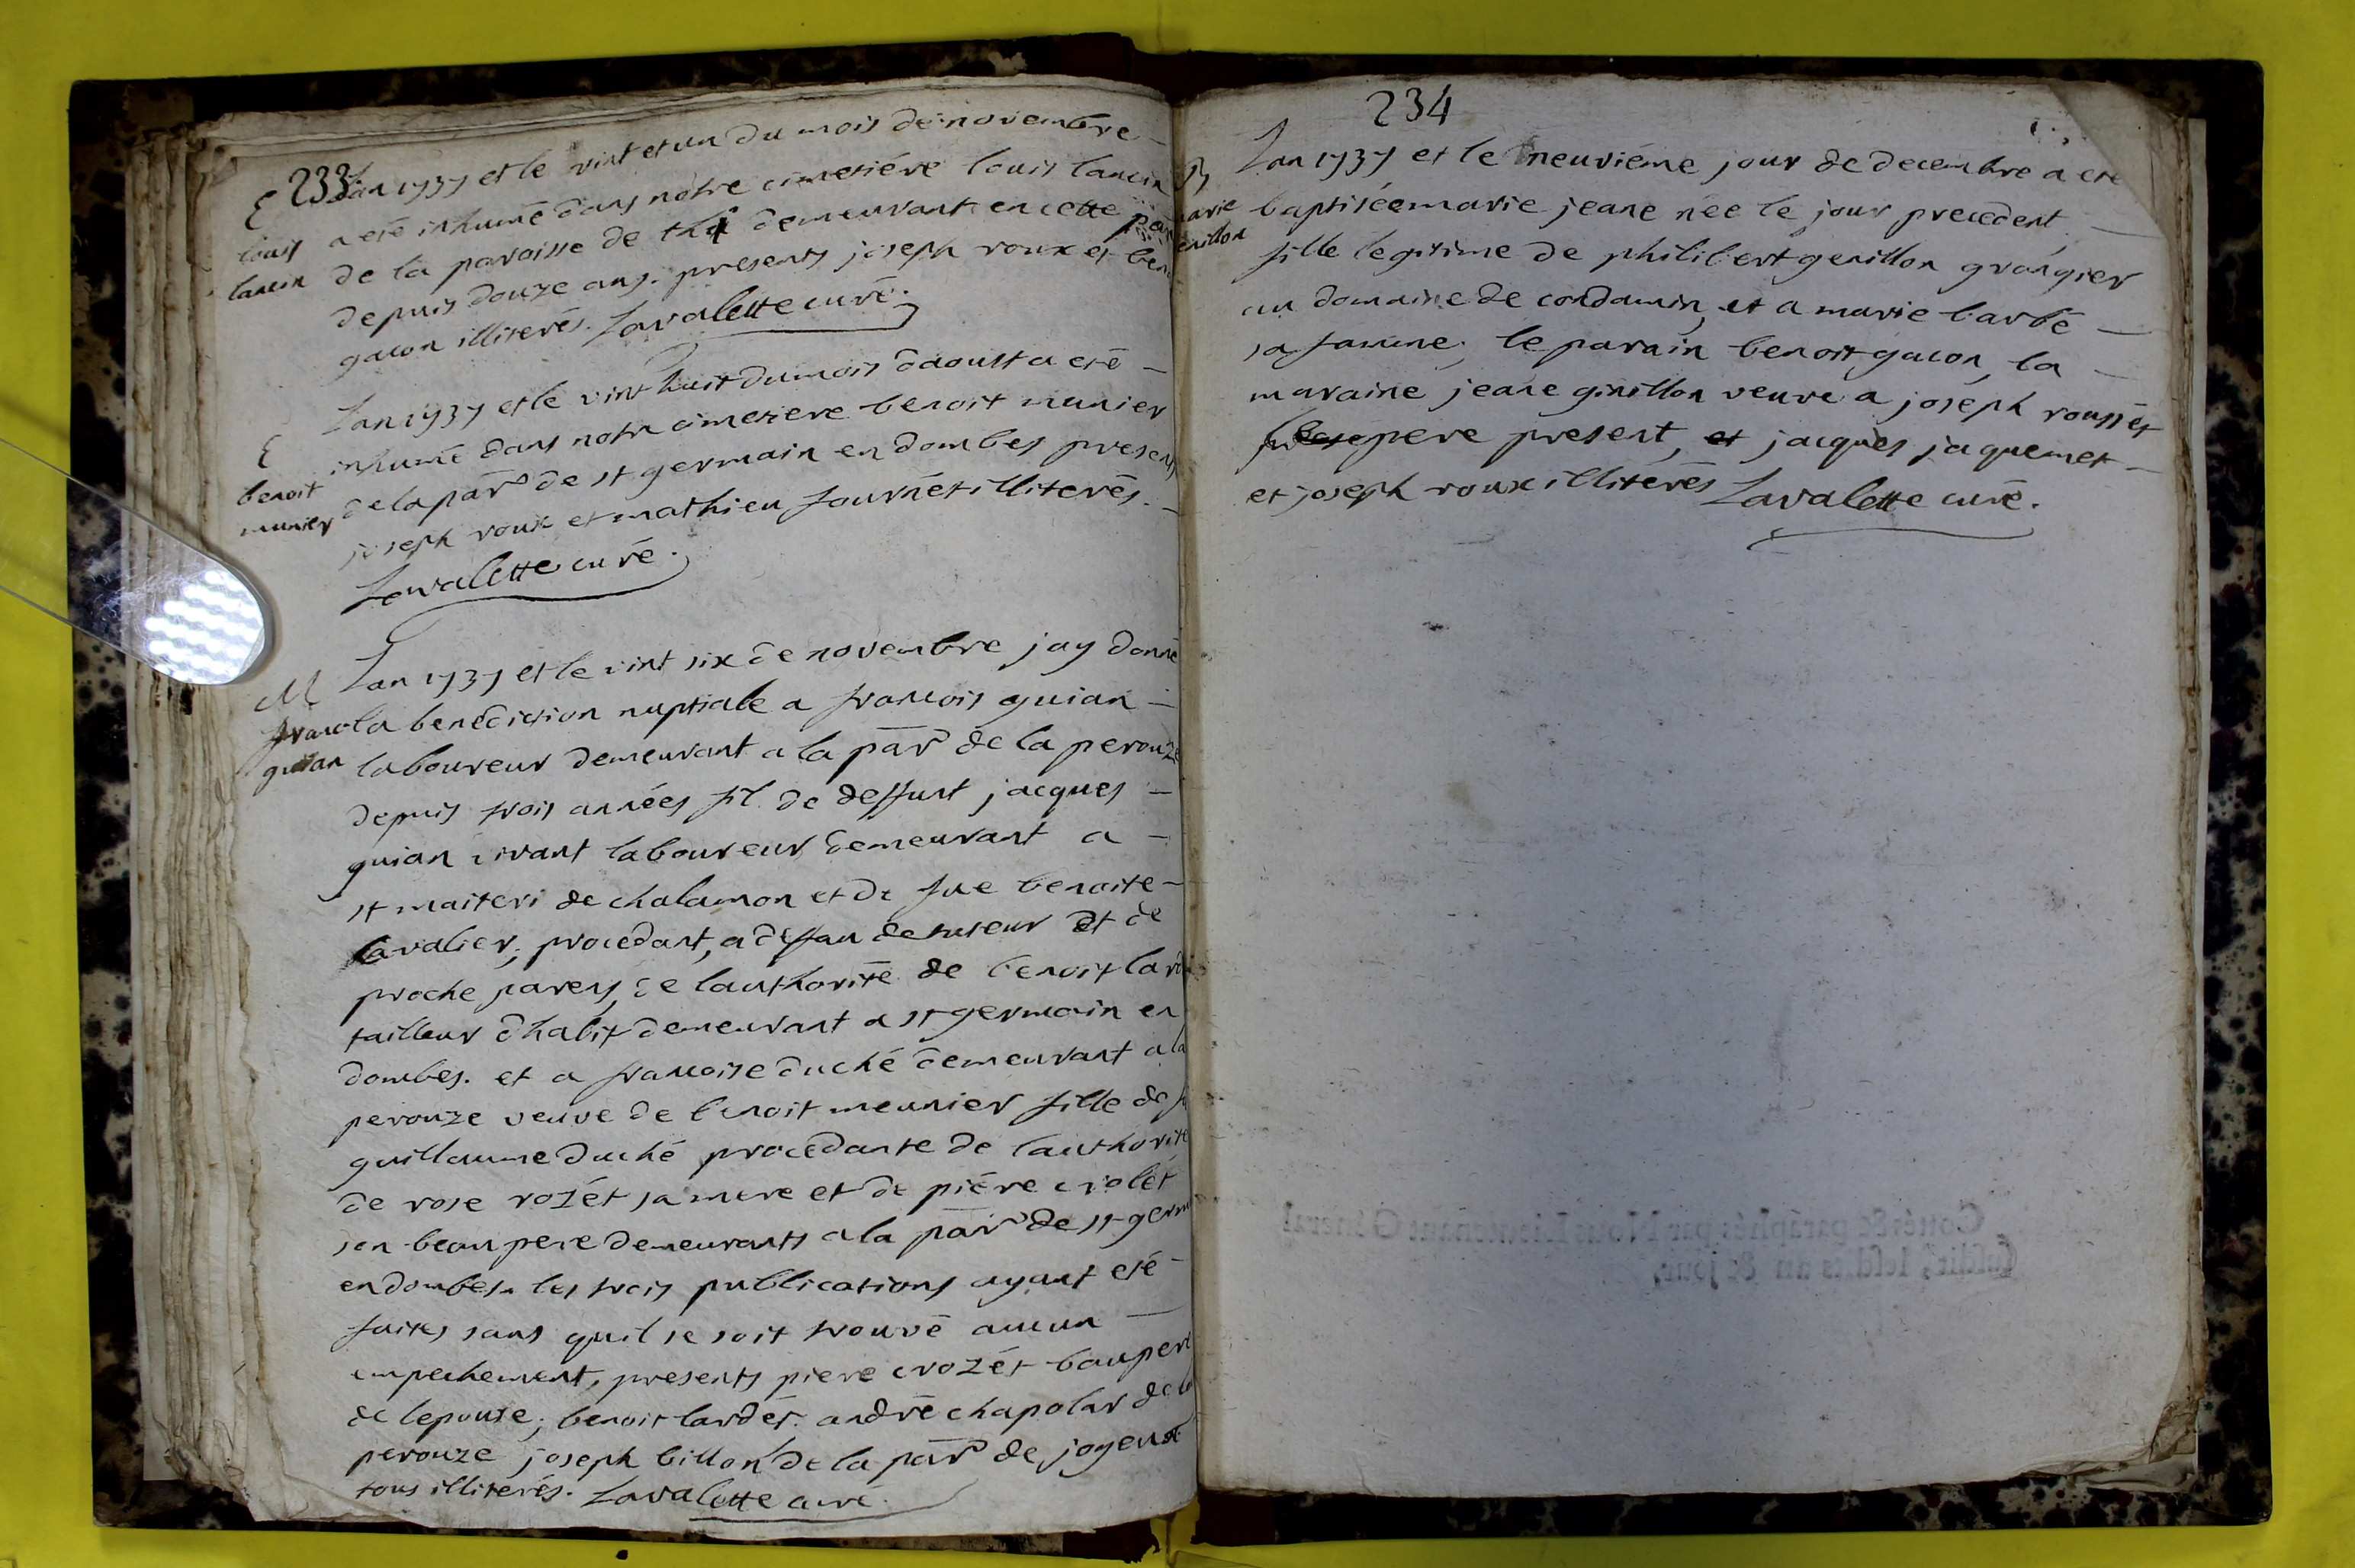 233
E
louis
lancin
Lan 1737 et le vint et un du mois de novembre
a eté inhumé dans nôtre cimetiére louis lancin
de la paroisse de thi demeurant en cette par
depuis douze ans. presents joseph roux et ben
gacon illiterés. Lavalette curé.
E
benoit
munier
Lan 1737 et le vint huit du mois daoust a eté
inhumé dans notre cimetiere benoit munier
de la par de st germain en dombes presents
joseph roux et mathieu fournét illiterés.
Lavalette curé.
M
franco
guian
Lan 1737 et le vint six de novembre jay donné
la benediction nuptiale a francois guian
laboureur demeurant a la par de la perouze
depuis trois années fil de deffunt jacques
guian vivant laboureur demeurant a
st maiteri de chalamon et de fue benoite
cavalier, procedant, a deffau de tuteur et de
proche parens, de lauthorité de benoit lard
tailleur dhabit demeurant a st germain en
dombes. et a francoise duché demeurant a la
perouze veuve de benoit meunier fille de f
guillaume duché procedante de lauthorité
de rose rozét sa mere et de piére violét
son beau pere demeurants a la par de st germ
en dombes. les trois publications ayant eté
faites sans quil se soit trouvé aucun
empechement, presents piere crozét baupere
de lepouse, benoit lardét. andré chapolar de la
perouze joseph billon de la par de joyeux
tous illiterés. Lavalette curé.
234
B
marie
genillon
Lan 1737 et le neuviéme jour de decembre a eté
baptisée marie jeane née le jour precedent
fille legitime de philibert genillon grangier
au domaine de condamin, et a marie barbé
sa famme. le parain benoit gacon, la
maraine jeane ginillon veuve a joseph roussét
pere present, et jacques jaquemet
et joseph roux illiterés Lavalette curé.
Cottés & paraphés par Nous Lieutenant Général
susdit, lesdits an & jour,